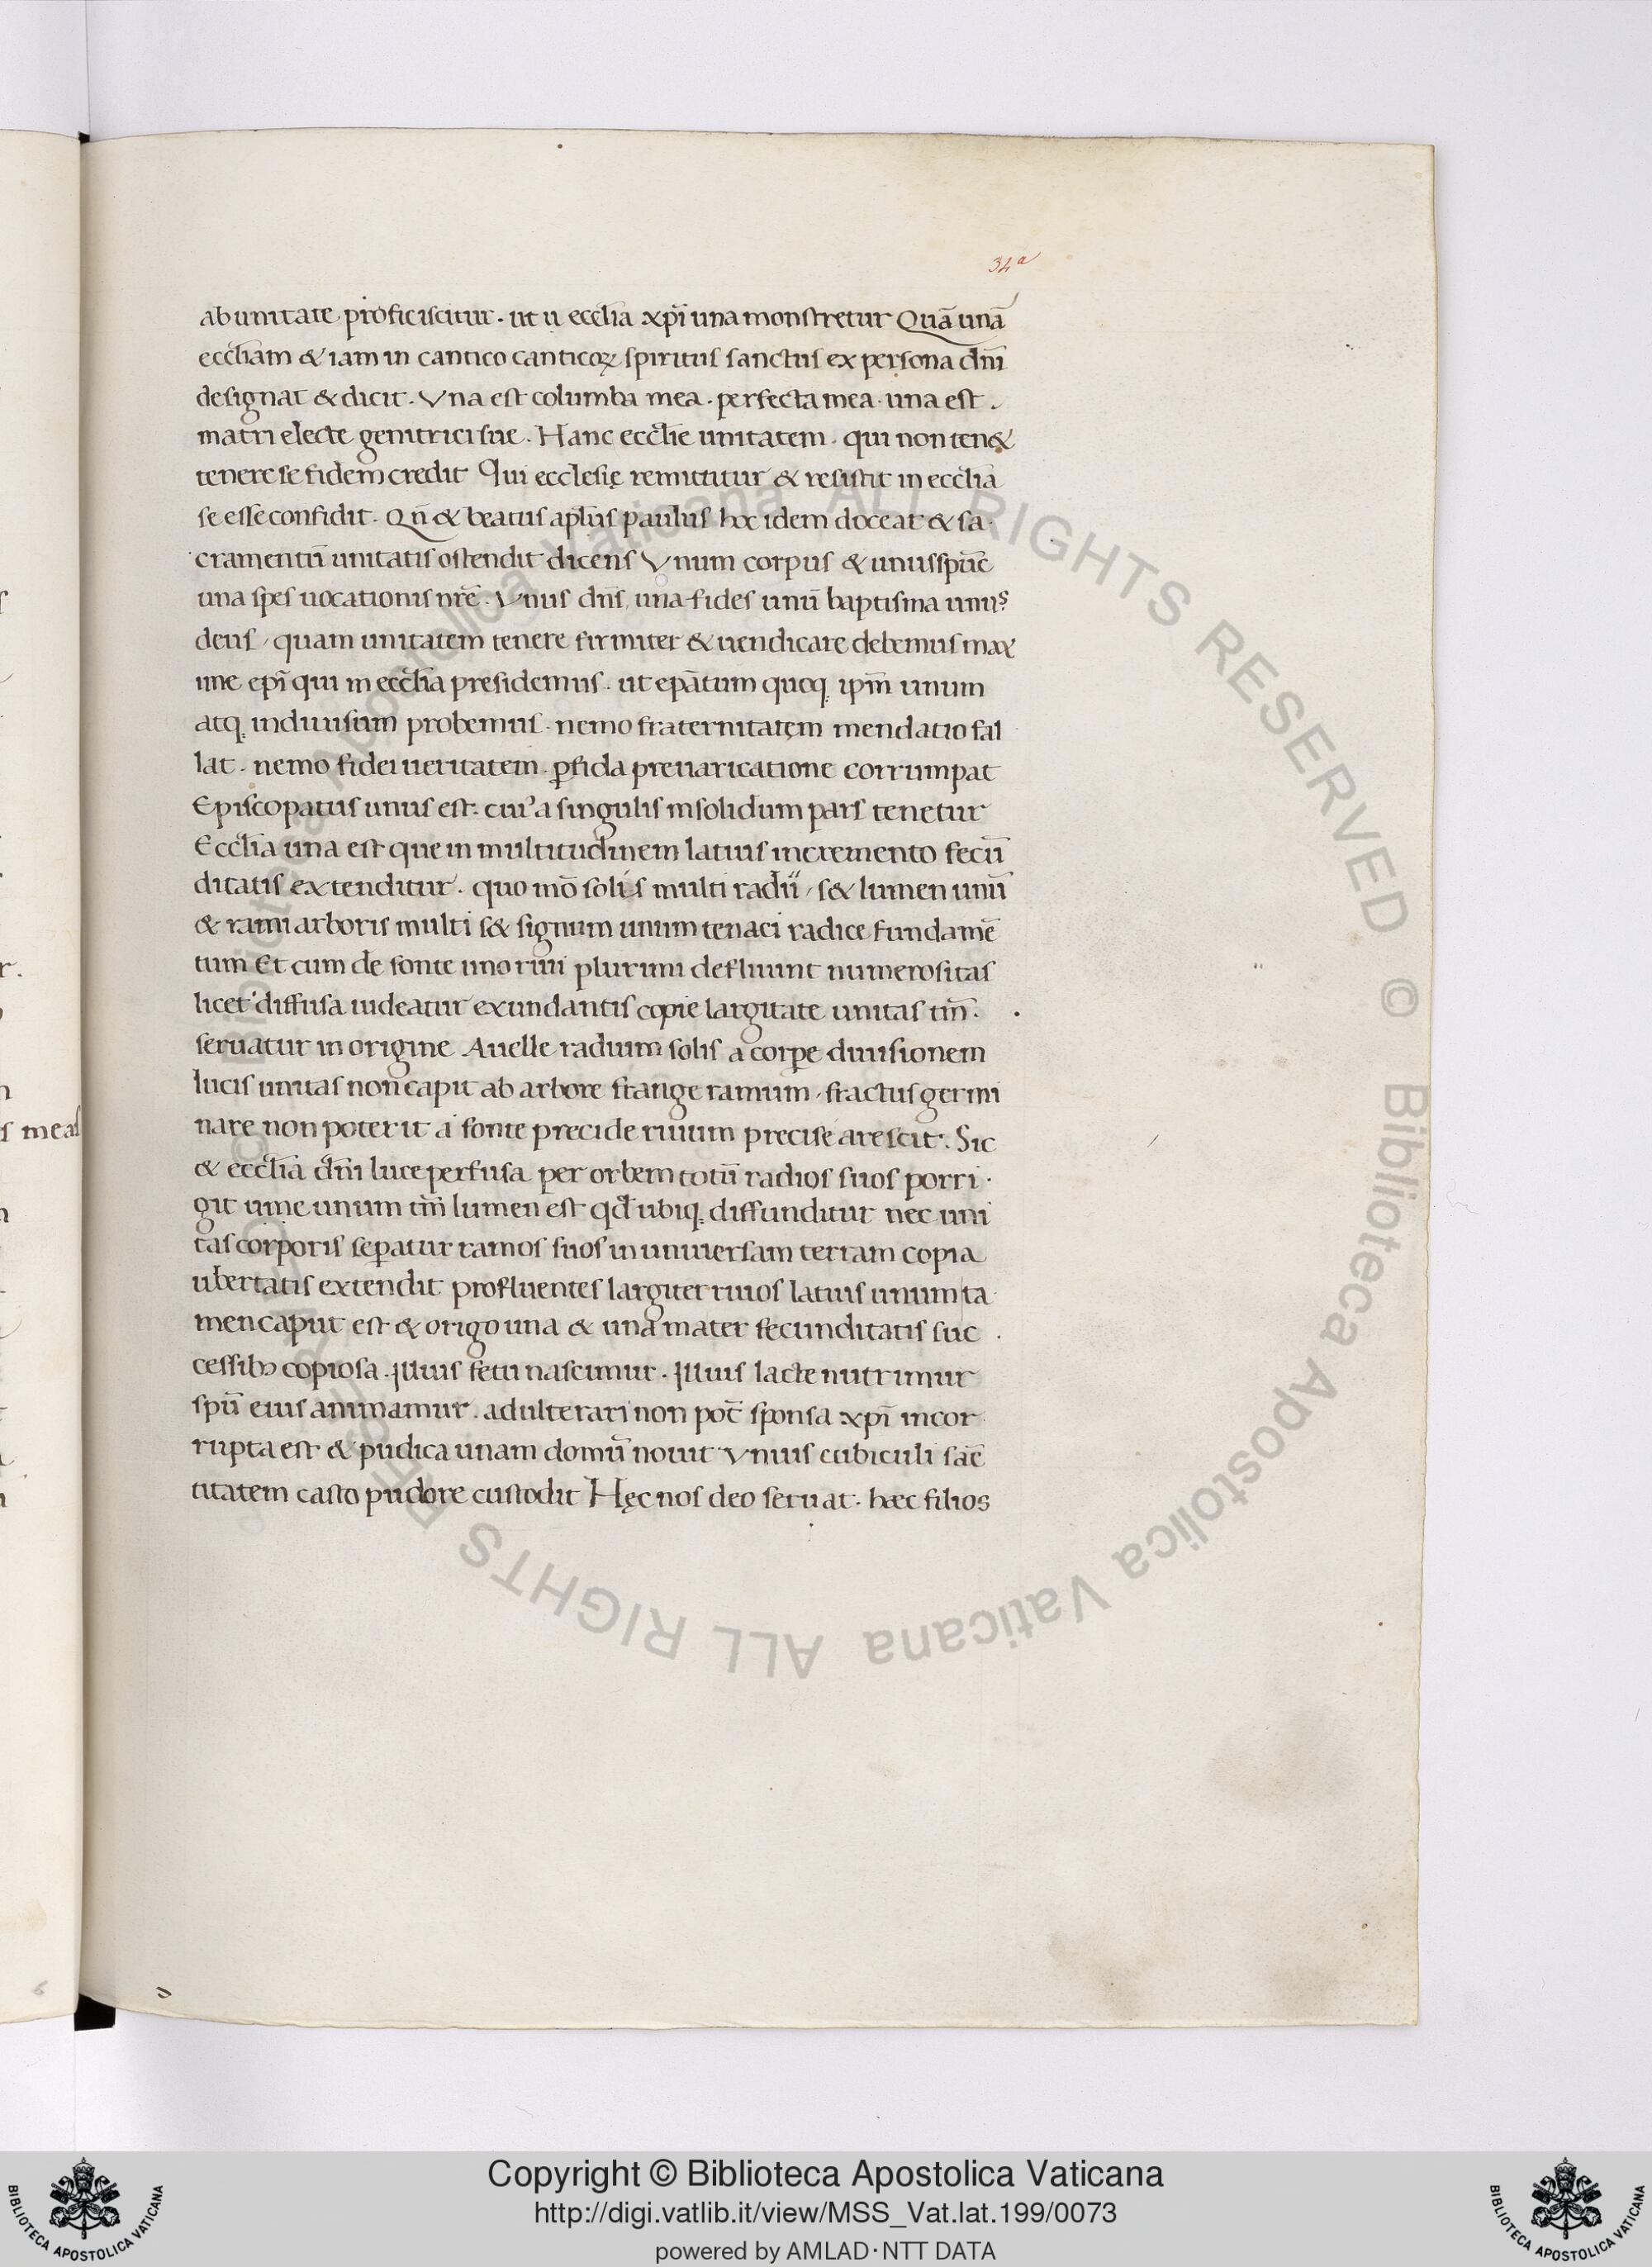 34a
ab unitate proficiscitur · ut u eccl̄ia xp̄i una monstretur Quā unā
eccl̄iam & iam in cantico canticoꝝ spiritus sanctus ex persona dn̄i
designat & dicit · Vna est columba mea · perfecta mea · una est
matri electe genitrici sue · Hanc eccl̄ie unitatem · qui non ten&
tenere se fidem credit Qui ecclesię remittitur & resistit in eccl̄ia
se esse confidit · Qn̄ & beatus apl̄us paulus hoc idem doceat & sa
cramentū unitatis ostendit dicens Vnum corpus & unus spūc
una spes uocationis nr̄e · Vnus dn̄s una fides unū baptisma unus
deus, quam unitatem tenere firmiter & uendicare debemus max
ime epī qui in eccl̄ia presidemus · ut epātum quoq; ipm̄ unum
atq; indiuisum probemus · nemo fraternitatem mendatio fal
lat · nemo fidei ueritatem ꝑfida preuaricatione corrumpat
Episcopatus unus est · cui᾽ a singulis insolidum pars tenetur
Eccl̄ia una est que in multitudinem latius incremento fecū
ditatis extenditur · quo mō solis multi radii, s& lumen unū
& rami arboris multi s& signum unum tenaci radice fundamē
tum Et cum de fonte uno riui plurimi defluunt numerositas
licet diffusa uideatur exundantis copie largitate unitas tm̄ ·
seruatur in origine Auelle radium solis a corꝑe diuisionem
lucis unitas non capit ab arbore frange ramum, fractus germi
nare non poterit a fonte precide riuum precise arescit · Sic
& eccl̄ia dn̄i luce perfusa per orbem totū radios suos porri ·
git ume unum tm̄ lumen est qd̄ ubiq; diffunditur nec uni
tas corporis seꝑatur ramos suos in uniuersam terram copia
ubertatis extendit profluentes largiter riuos latius unum ta
men caput est & origo una & una mater fecunditatis suc
cessibꝫ copiosa · Illius fetu nascimur · Illius lacte nutrimur
spū eius animamur · adulterari non pot̄ sponsa xp̄i incor
rupta est & pudica unam domū nouit Vnius cubiculi sāc
titatem casto pudore custodit Hęc nos deo seruat · hæc filios
s meas
Copyright © Biblioteca Apostolica Vaticana
http://digi.vatlib.it/view/MSS_Vat.lat.199/0073
powered by AMLAD·NTT DATA
BIBLIOTECA APOSTOLICA VATICANA
BIBLIOTECA APOSTOLICA VATICANA
© Biblioteca Apostolica Vaticana ALL RIGHTS RESERVED
© Biblioteca Apostolica Vaticana ALL RIGHTS RESERVED